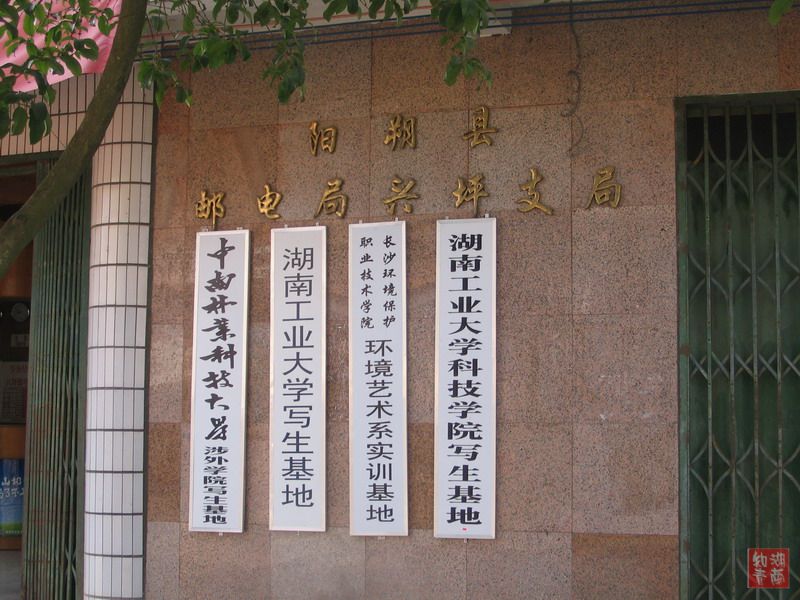 阳朔县
邮电局兴坪支局
中南林业科技大学
涉外学院写生基地
湖南工业大学写生基地
长沙环境保护
职业技术学院
环境艺术系实训基地
湖南工业大学科技学院写生基地